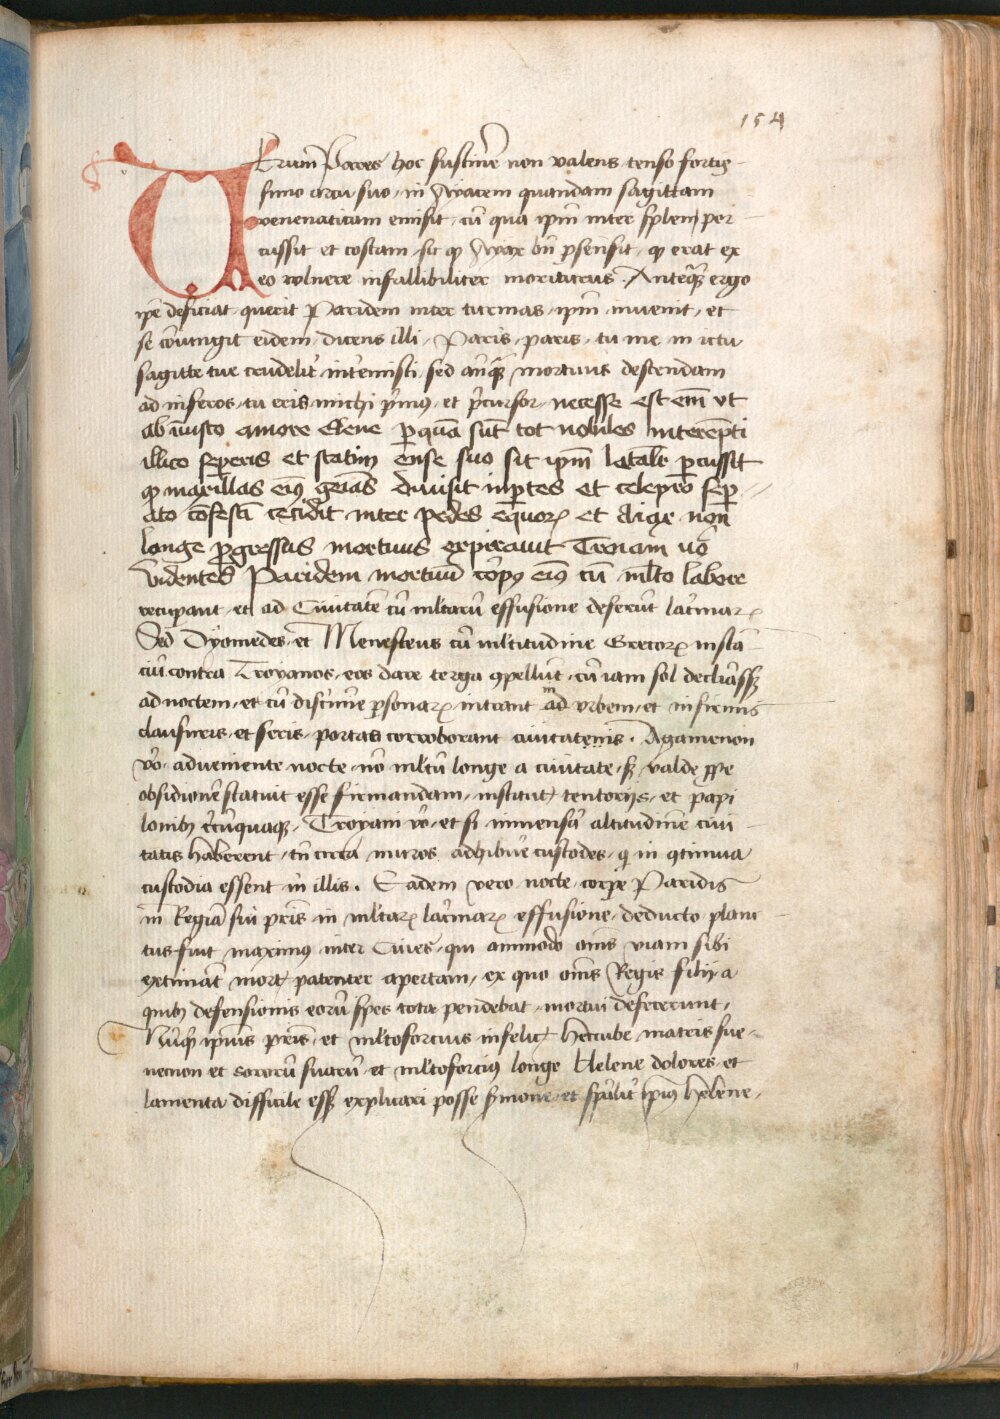 154
VErum Pares hoc sustinēre non valens tenso fortis-
simo arcu suo, in Ayacem quandam sagittam
venenaticam emisit, cū qua ipm̄ inter splenem per
cussit et costam, sic qꝫ Ayax bn̄ p̄sensit, qꝫ erat ex
eo vulnere infallibiliter moriturus. Anteqꝫ ergo
ipē deficiat, querit Paridem inter turmas, ipm̄ inuenit, et
se cōiungit eidem, dicens illi, Paris, paris, tu me in ictu
sagitte tue crudelit̄ intemisti, sed anq̄ꝫ mortuus descendam
ad inferos, tu eris michi p̄mꝰ, et p̄cursor, necesse est em̄ vt
ab iniusto amore Elene ꝑ quā sūt tot nobiles interēpti
illico seperis et statim ense suo sic ipm̄ letalit̄ ꝑcussit
qꝫ maxillas eiꝰ geīas diuisit in ꝑtes et celepro sep
ato cōfestī cecidit inter pedes equorꝝ et Aiax non
longe ꝓgressus mortuus expirauit Troiani vō
videntes Paridem mortuū corpꝰ eiꝰ cū mlto labore
recupant, et ad Ciuitatē cū mltarū effusione deferūt lacrimarꝝ
Sed Dyomedes, et Menesteus cū mltitudine Grecorꝝ instā
ciū contra Troyanos, eos dare terga ꝯpellūt, cū iam sol declināssꝫ
ad noctem, et cū discrīne ꝑsonarꝝ intrant ad vrbem, et in firmis
clausuris, et seris, portas corroborant ciuitatenis. Agamenon
vō, adueniente nocte, nō mltū longe a ciuitate, sꝫ valde ꝓpe
obsidionē statuit esse firmandam, institut̄ tentorijs, et papi
lonibꝫ c̄cūquaqꝫ, Troyani vō, et si inmensā altitudinē ciui
tatis haberent, tn̄ circa muros adhibuēre custodes, q̄ in ꝯtinua
custodia essent in illis. Eadem vero nocte, corpe Paridis
in Regiā sui p̄ris in mltarꝝ lacrimarꝝ effusione, deducto, planc
tus fuit maximꝰ inter Ciues, qui ammodo om̄s viam sibi
extimāt mort̄ patenter apertam, ex quo om̄s Regis filij a
quibꝫ defensionis eorū spes tota pendebat, mortui defecerunt,
ipsius p̄ris, et mltofortius infelic̄ Hercube matris sue
necnon et sororū suarū, et mltofortiꝰ longe Helene dolores, et
lamenta difficile essꝫ explicari posse s̄mone, et sp̄alit̄ ipiꝰ helene,